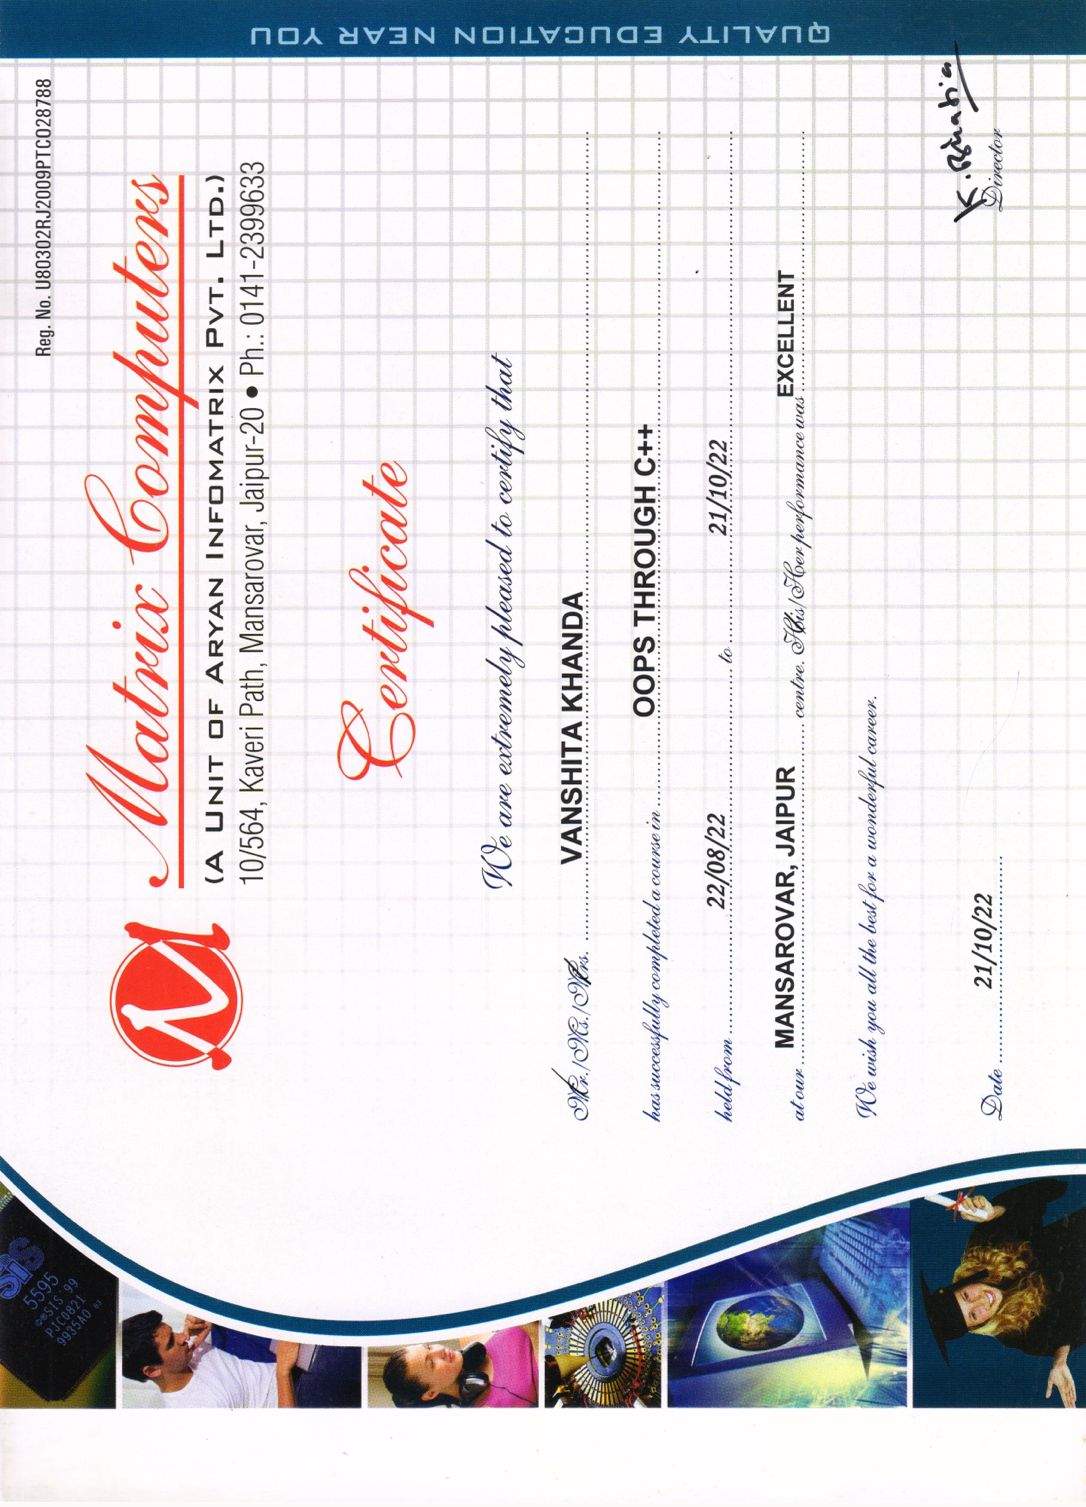 Reg. No. U80302RJ2009PTC028788
Matrix Computers
(A UNIT OF ARYAN INFOMATRIX PVT. LTD.)
10/564, Kaveri Path, Mansarovar, Jaipur-20 ● Ph.: 0141-2399633
Certificate
We are extremely pleased to certify that
Mr./Ms./Mrs. VANSHITA KHANDA
has successfully completed a course in OOPS THROUGH C++
held from 22/08/22 to 21/10/22
at our MANSAROVAR, JAIPUR centre. His/Her performance was EXCELLENT
We wish you all the best for a wonderful career.
K. Bhatia
Date 21/10/22 Director
QUALITY EDUCATION NEAR YOU
SiS
5595
SIS'99
PJC0821
9935AD